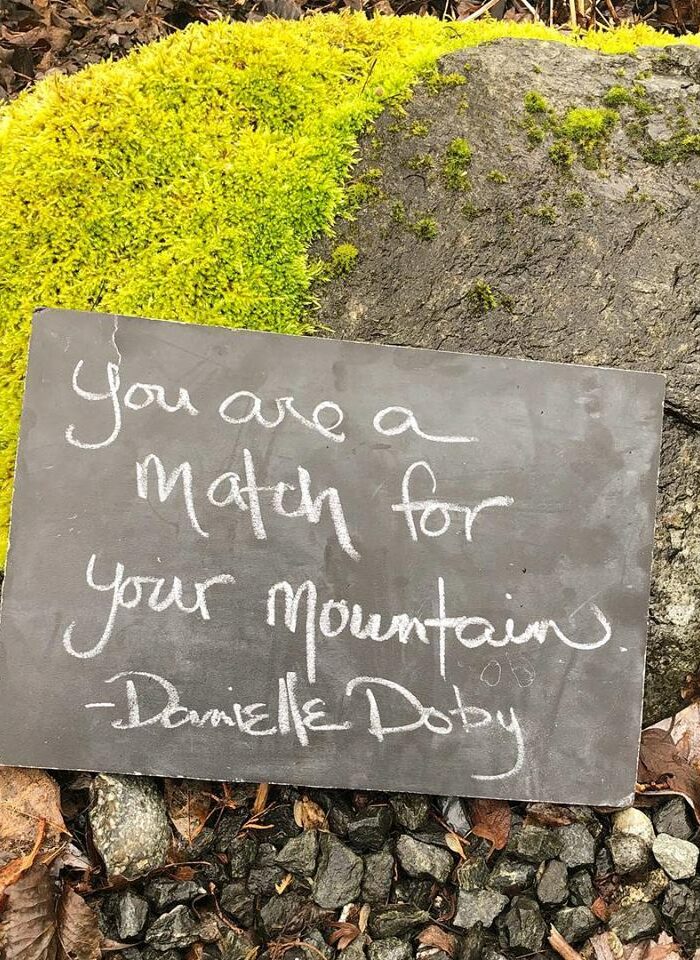 You are a
Match for
your Mountain.
-Danielle Doby